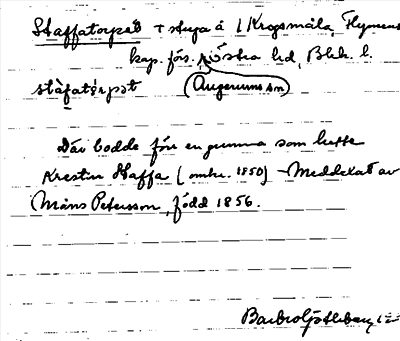 Staffatorpet + stuga å 1 Krogsmåla, Flymens
kap. förs. Östra hd, Blek. l.
stàfatòrpət (Augerums sn)
Där bodde förr en gumma som hette
Kerstin Staffa (omkr. 1850) – Meddelat av
Måns Petersson, född 1856.